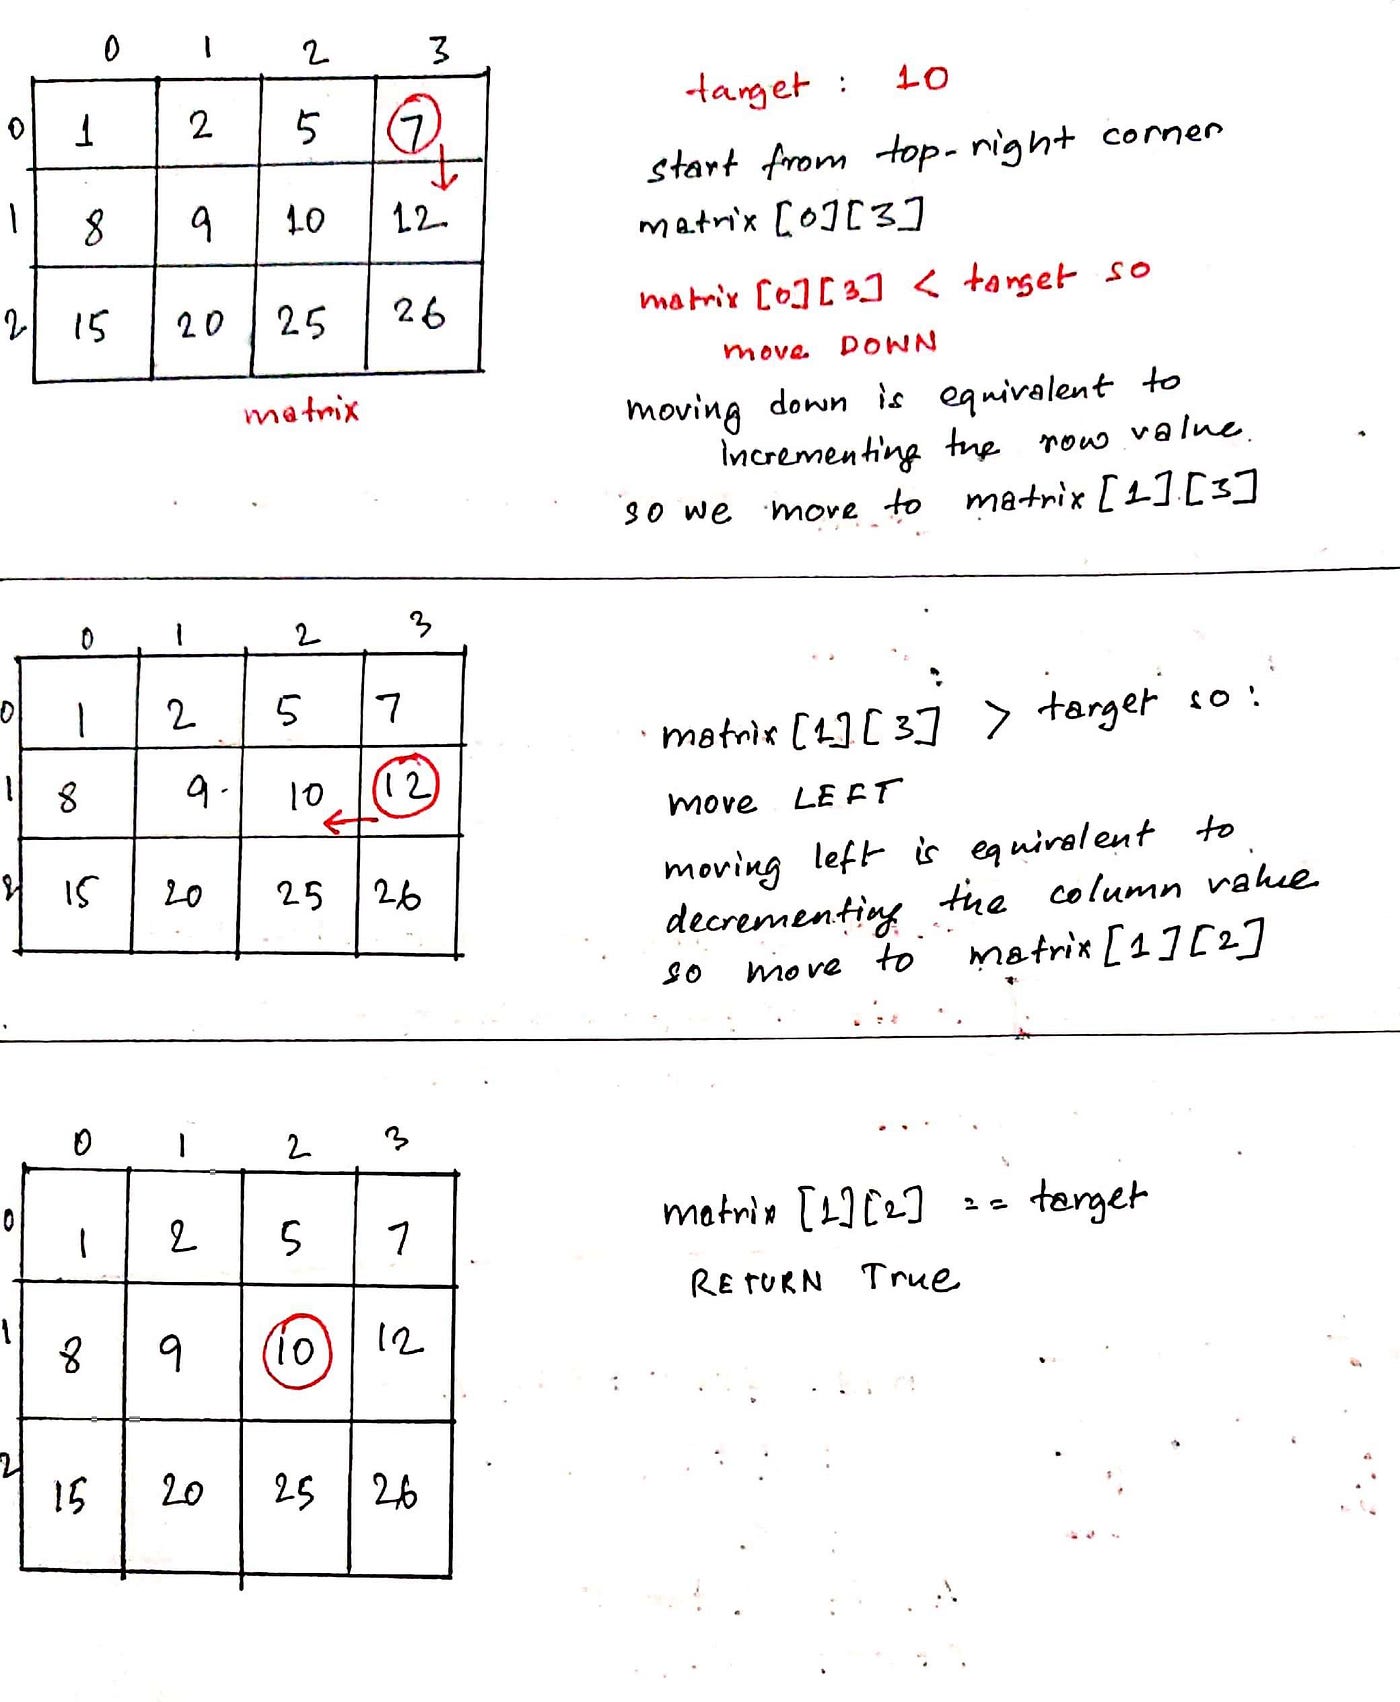 0 1 2 3
0 1 2 5 7
1 8 9 10 12
2 15 20 25 26
matrix
target : 10
start from top-right corner
matrix [0][3]
matrix [0][3] < target so
move DOWN
moving down is equivalent to
incrementing the row value.
so we move to matrix [1][3]
0 1 2 3
0 1 2 5 7
1 8 9 10 12
2 15 20 25 26
matrix [1][3] > target so :
move LEFT
moving left is equivalent to
decrementing the column value
so move to matrix [1][2]
0 1 2 3
0 1 2 5 7
1 8 9 10 12
2 15 20 25 26
matrix [1][2] == target
RETURN True